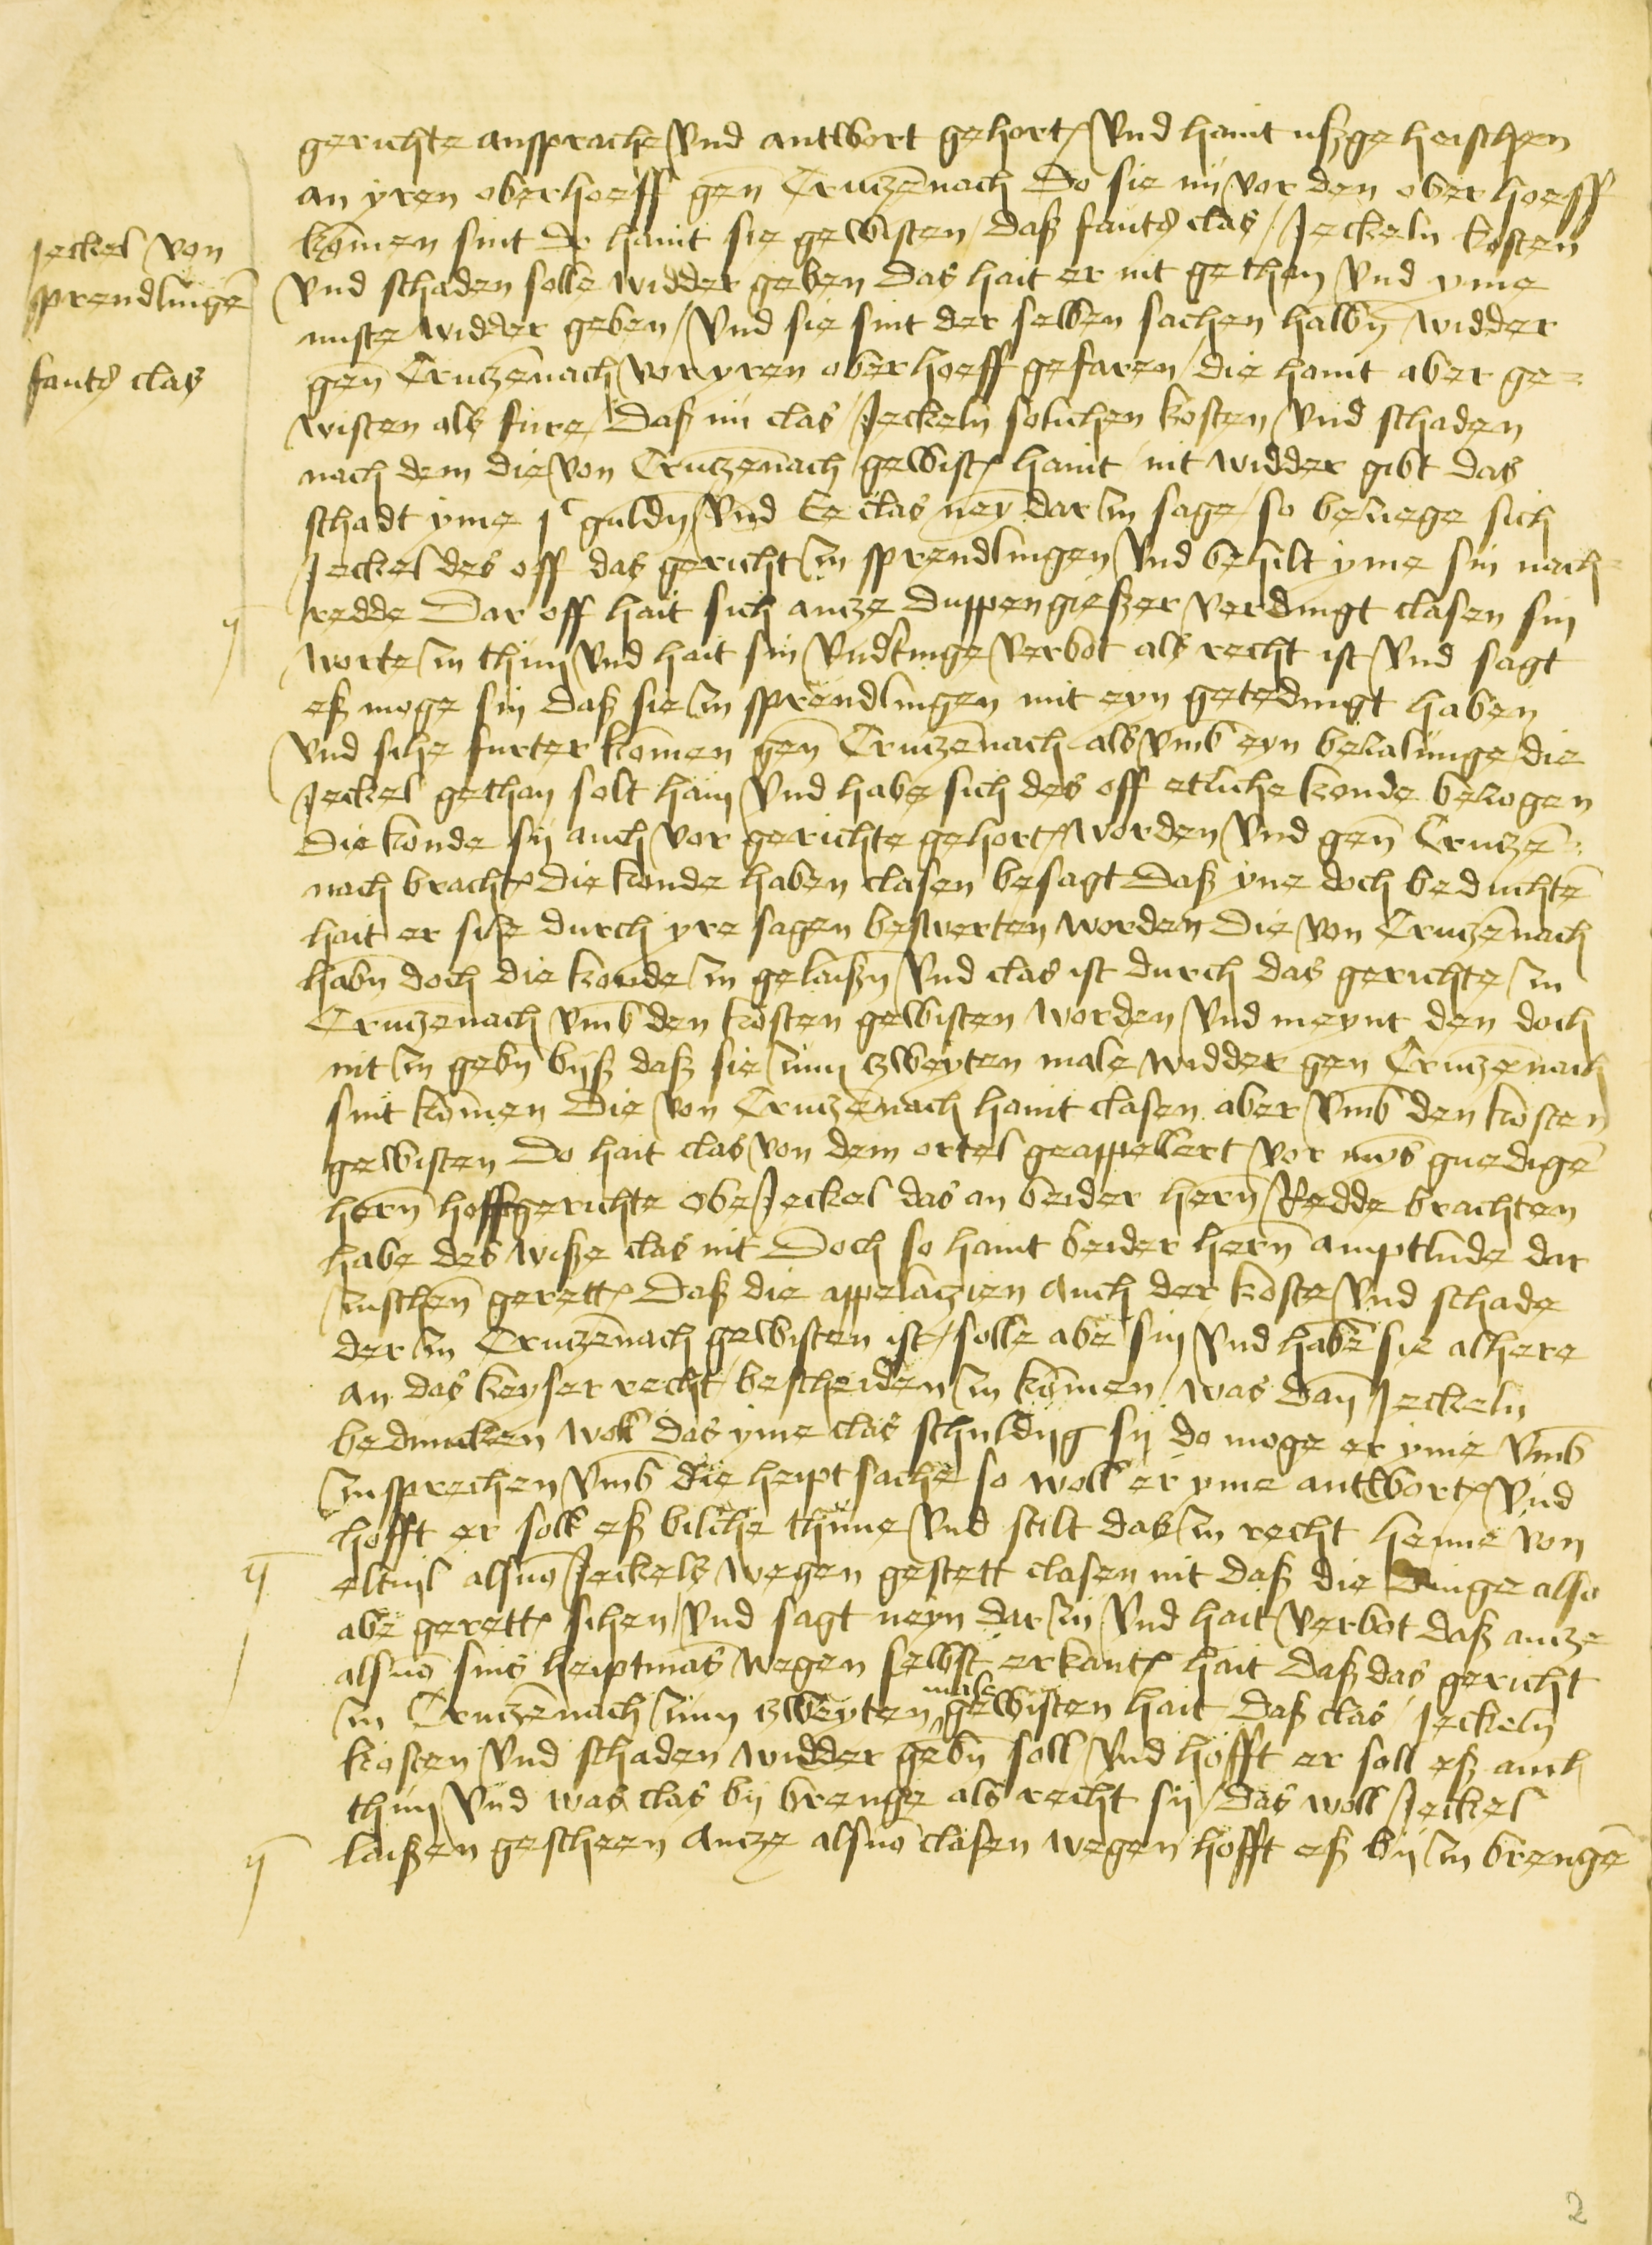 Jeckel von
sprendlingē
fauts clas
gerichte ansprache vnd antwort gehort vnd haint ußgeheischen
an yren oberhoeff gen Crutzenach Do sie nü vor den oberhoeff
komen sint do haint sie gewisten daß fauts clas Jeckeln kosten
vnd schaden solle widder geben das hait er nit gethan vnd yme
muste widder geben vnd sie sint der selben sachen halbn widder
gen Crutzenach vor yren oberhoeff gefaren die haint aber ge=
wisten als fure Daß nü clas Jeckeln solichen kosten vnd schaden
nach dem die von Crutzenach gewist haint nit widder gibt das
schadt yme jc guldn vnd Ee clas neyn dar zu sage so beziege sich
Jeckel des off das gericht zu sprendlingen vnd behilt yme sin nach=
redde Dar off hait sich antze duppengießer verdingt clasen sin
worte zu thun vnd hait sin vnd[...]tinge verbot als recht ist vnd sagt
eß moge sin daß sie zu sprendlingen mit eyn getedingt haben
vnd sihe furter komen gen Crutzenach als vmb eyn bezalunge die
Jeckel gethan solt hain vnd habe sich des off etliche konde bezogen
die konde sij auch vor gerichte gehort worden vnd gen Crutze=
nach bracht die konde haben clasen besagt Daß yne doch beduchte
hait er sihe durch yre sagen beswerten worden Die von Crutzenach
habn doch die konde zu gelaißn vnd clas ist durch das gerichte zu
Crutzenach vmb den kosten gewisten worden vnd meynt den doch
nit zu gebn byß daß sie zum zweyten male widder gen Crutzenach
sint komen Die von Crutzenach haint clasen aber vmb den kosten
gewisten Do hait clas von dem ortel geappellert vor myns gnedigē
hern hoffgerichte Obe Jeckel das an beider hern Redde brachten
habe des wiße clas nit Doch so haint beider hern amptlude dar
zuschen gerett Daß die appelatzien auch der koste vnd schade
der zu Crutzenach gewisten ist solle abe sin vnd habe sie alhere
an das keyser recht bescheiden zu komen was dan Jeckeln
beduncken woll das yme clas schuldig sij do moge er yme vmb
zusprechen vmb die heiptsache so woll er yme antwort vnd
hofft er soll eß biliche thüne vnd stelt das zu recht henne von
eltuil alsuo Jeckels wegen gestett clasen nit daß die dinge also
abe gerett sihen vnd sagt neyn dar zu vnd hait verbot daß antze
alsuo sins heiptmas wegen selbst erkant hait Daß das gericht
zu Crutzenach zum zweyten male gewisten hait daß clas Jeckeln
kosten vnd schaden widder gebn soll vnd hofft er soll eß auch
thun vnd was clas bij brenge als recht sij das woll Jeckel
laißen gescheen Antze alsuo clasen wegen hofft eß bij zu brengē
2